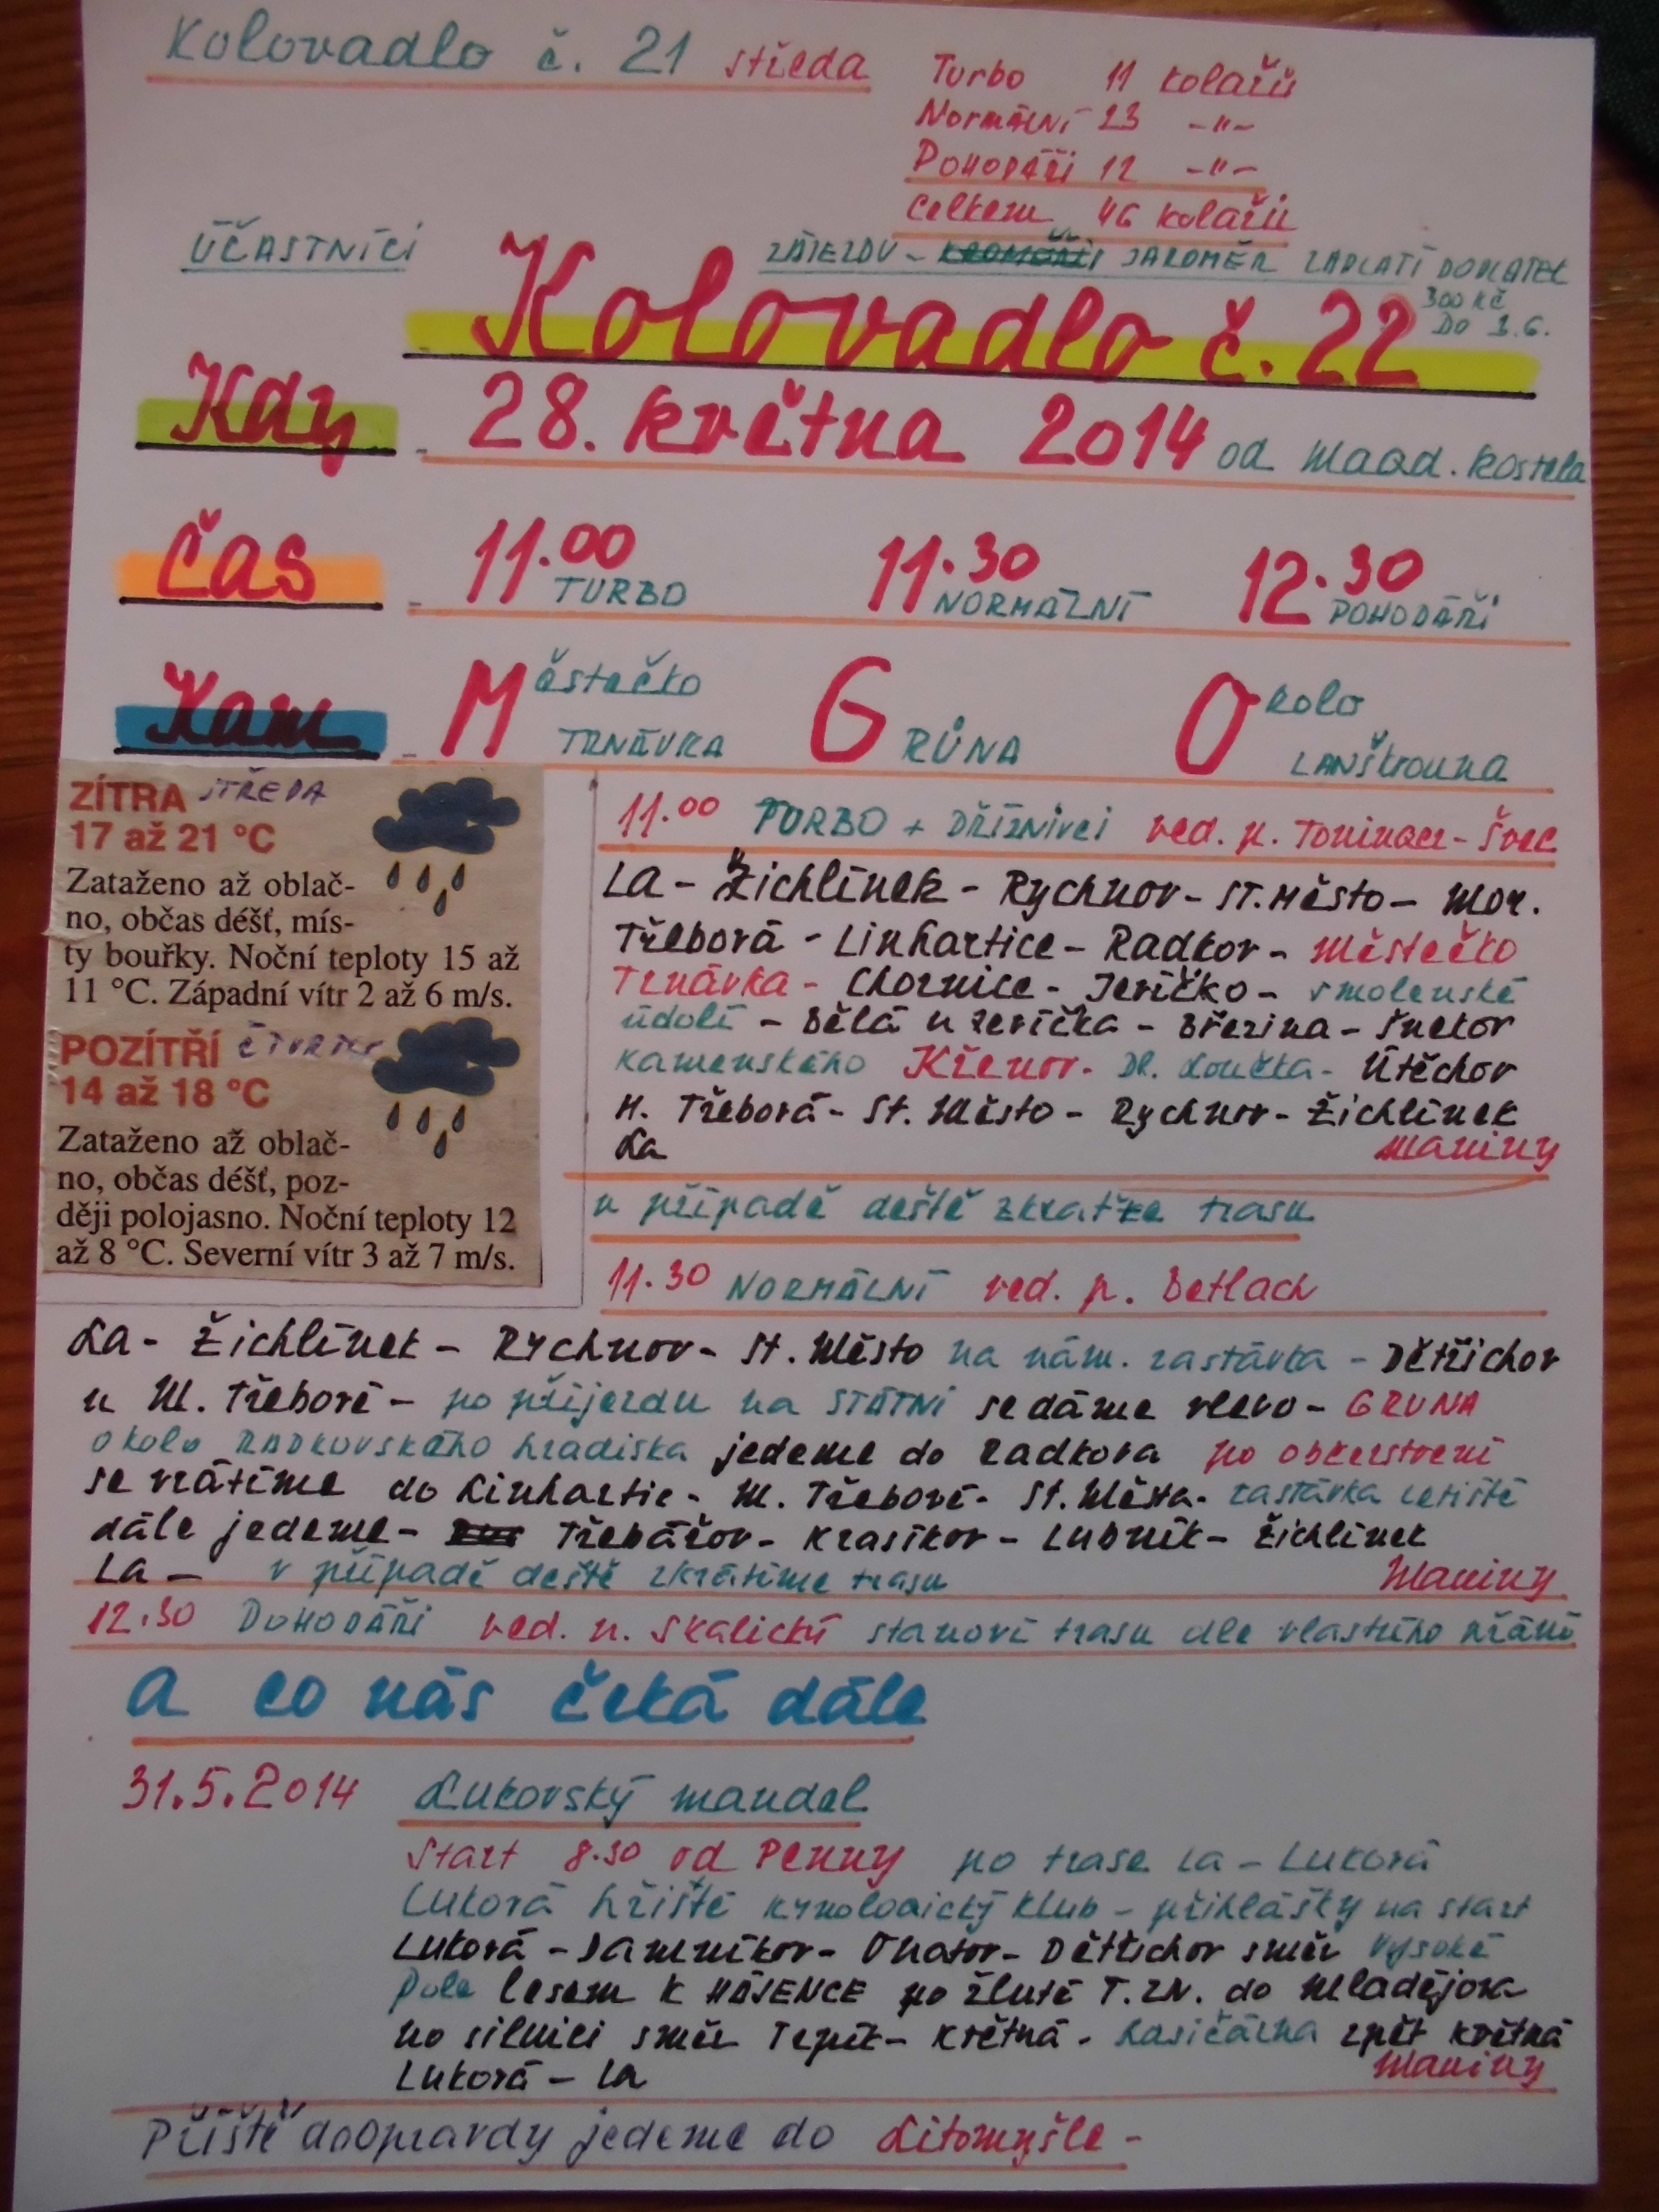 Kolovadlo č. 21 středa
Turbo 11 kolařů
Normální 23 -"-
Pohodáři 12 -"-
Celkem 46 kolařů
ÚČASTNÍCI ZÁJEZDU - JAROMĚŘ ZAPLATÍ DOPLATEK
300 Kč
DO 1.6.
Kolovadlo č. 22
Kdy - 28. května 2014 od Maad. kostela
Čas - 11.00 TURBO 11.30 NORMÁLNÍ 12.30 POHODÁŘI
Kam - Městečko TRNÁVKA GRŮNA Okolo LANŠkrouna
ZÍTRA STŘEDA
17 až 21 °C
Zataženo až oblač-
no, občas déšť, mís-
ty bouřky. Noční teploty 15 až
11 °C. Západní vítr 2 až 6 m/s.
POZÍTŘÍ ČTVRTEK
14 až 18 °C
Zataženo až oblač-
no, občas déšť, poz-
ději polojasno. Noční teploty 12
až 8 °C. Severní vítr 3 až 7 m/s.
11.00 TURBO + DŘÍŽNIVCI ved. p. Toninger - Švec
LA - Žichlínek - Rychnov - ST. Město - Mor.
Třebová - Linhartice - Radkov - Městečko
Trnávka - Chornice - Jevíčko - smolenské
údolí - Bělá u Jevíčka - Březina - Šnekov
Kamenského Křenov - Dl. Loučka - Útěchov
M. Třebová - St. Město - Rychnov - Žichlínek
La Maniny
v případě deště zkraťte trasu
11.30 NORMÁLNÍ ved. p. Betlach
La - Žichlínek - Rychnov - St. Město na nám. zastávka - Dětřichov
u M. Třebové - po příjezdu na STÁTNÍ se dáme vlevo - GRUNA
okolo RADKOVSKÉHO hradiska jedeme do Radkova po občerstvení
se vrátíme do Linhartic - M. Třebové - St. Města - zastávka letiště
dále jedeme - Třebářov - Krasíkov - Lubník - Žichlínek
LA - v případě deště zkrátíme trasu Maniny
12.30 POHODÁŘI ved. p. Skalický stanoví trasu dle vlastního přání
a co nás čeká dále
31.5.2014 Lukovský mandel
Start 8.30 od Penny po trase La - Luková
Luková hřiště kynologický klub - přihlášky na start
Luková - Damníkov - Anatov - Dětřichov směr Vysoké
Pole lesem k HÁJENCE po žluté T. ZN. do Mladějova
po silnici směr Trpík - Květná - hasičárna zpět Květná
Luková - La Maniny
Příště doopravdy jedeme do Litomyšle -